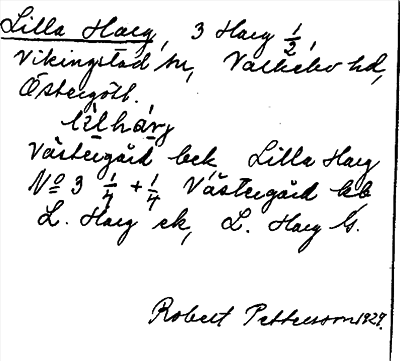 Lilla Harg, 3 Harg ½,
Vikingstad sn, Valkebo hd,
Östergötl.
lìlhárj
Västergård bek Lilla Harg
No 3 ¼ + ¼ Västergård kb,
L. Harg ek, L. Harg ls.
Robert Pettersson 1929.